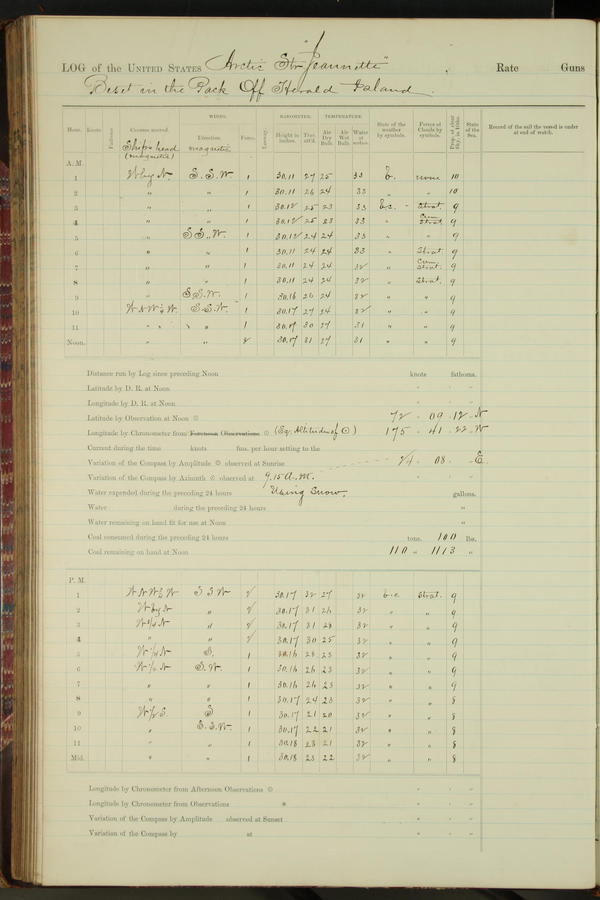 LOG of the UNITED STATES Arctic Str "Jeannette" Rate Guns
Beset in the Pack Off Herald Island.
WINDS. BAROMETER. TEMPERATURE.
Hour. Knots. Fathoms. Courses steered. Direction. Force. Leeway. Height in inches. Ther. att'd. Air Dry Bulb. Air Wet Bulb. Water at surface. State of the weather by symbols. Forms of Clouds by symbols. Prop. of clear Sky, in 10ths. State of the Sea. Record of the sail the vessel is under at end of watch.
Ship's head (magnetic) magnetic
A. M.
1 W by N. S. S. W. 1 30.11 27 25 33 b. none 10
2 " " 1 30.11 26 24 33 " " 10
3 " " 1 30.12 25 23 33 b.c. Strat. 9
4 " " 1 30.12 25 23 33 " Cum. Strat. 9
5 " S S. W. 1 30.12 24 24 33 " " 9
6 " " 1 30.11 24 24 33 " Strat. 9
7 " " 1 30.11 24 24 32 " Cum. Strat. 9
8 " " 1 30.11 24 24 32 " Strat. 9
9 " S.S.W. 1 30.16 26 24 32 " " 9
10 W N W ½ W. S.S.W. 1 30.17 27 24 32 " " 9
11 " " 1 30.17 30 27 31 " " 9
Noon. " " 2 30.17 31 27 31 " " 9
Distance run by Log since preceding Noon knots fathoms.
Latitude by D. R. at Noon
Longitude by D. R. at Noon
Latitude by Observation at Noon 72 . 09 . 12 . N
Longitude by Chronometer from Forenoon Observations (Eq. Altitudes of ☉) 175 . 41 . 22 . W
Current during the time knots fms. per hour setting to the
Variation of the Compass by Amplitude observed at Sunrise 24 . 08 . E.
Variation of the Compass by Azimuth observed at 9.15 A.M.
Water expended during the preceding 24 hours Using Snow. gallons.
Water during the preceding 24 hours "
Water remaining on hand fit for use at Noon "
Coal consumed during the preceding 24 hours tons. 100 lbs.
Coal remaining on hand at Noon 110 " 1113 "
P. M.
1 W N W ½ W S S W 2 30.17 32 27 32 b.c Strat. 9
2 W by N " 2 30.17 31 26 32 " " 9
3 " 2 30.17 31 28 32 " " 9
4 " " 2 30.17 30 25 32 " " 9
5 S. 1 30.16 28 23 32 " " 9
6 S. W. 1 30.16 26 23 32 " " 9
7 " " 1 30.16 26 23 32 " " 9
8 " " 1 30.17 24 23 32 " " 8
9 W ½ S. S 1 30.17 21 20 32 " " 8
10 " S.S.W. 1 30.17 22 21 32 " " 8
11 " " 1 30.18 23 21 32 " " 8
Mid. " " 1 30.18 23 22 32 " " 8
Longitude by Chronometer from Afternoon Observations
Longitude by Chronometer from Observations *
Variation of the Compass by Amplitude observed at Sunset
Variation of the Compass by at